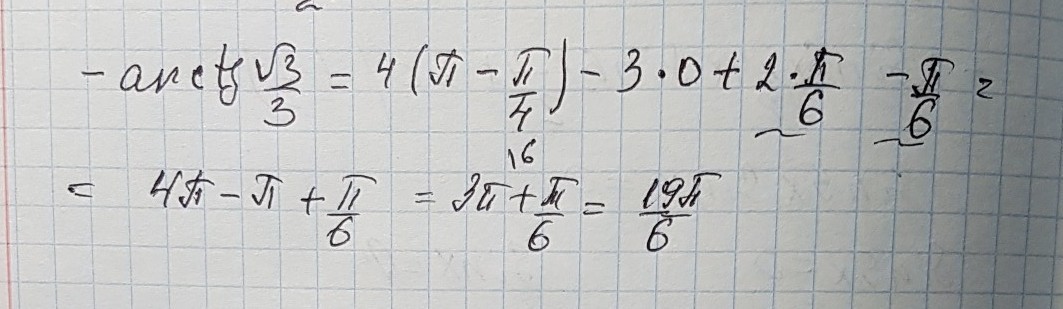 - arcctg √3/3 = 4(π - π/4) - 3 · 0 + 2 · π/6 - π/6 =
\6
= 4π - π + π/6 = 3π + π/6 = 19π/6